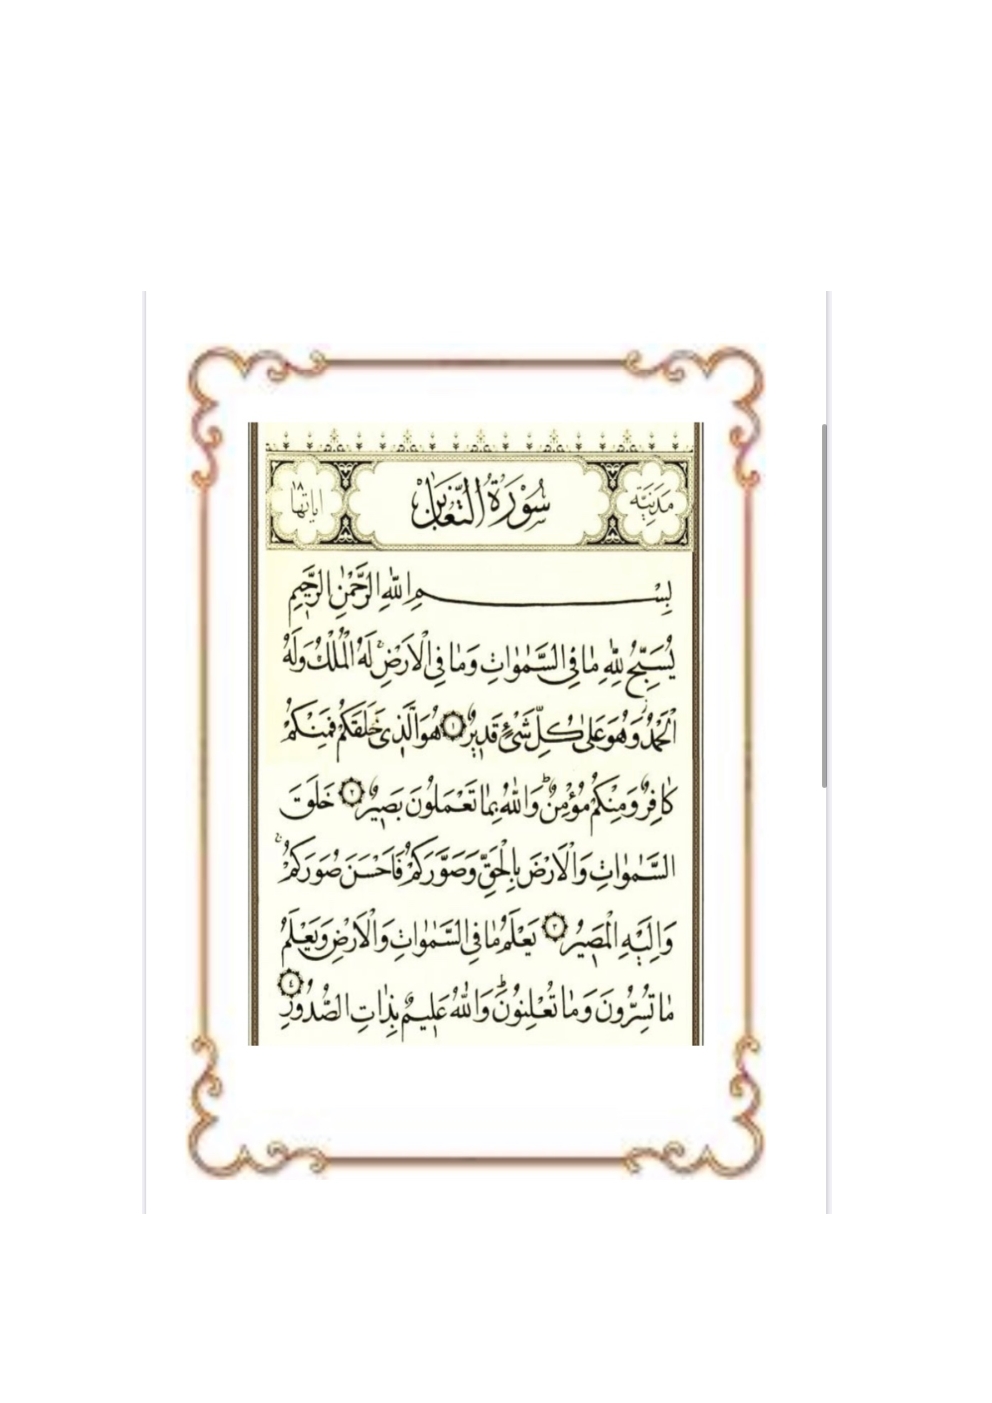 مَدَنِيَّة
سُورَةُ التَّغَابُنِ
اياتها ١٨
بِسْمِ اللّٰهِ الرَّحْمٰنِ الرَّحِيمِ
يُسَبِّحُ لِلّٰهِ مَا فِي السَّمٰوَاتِ وَمَا فِي الْاَرْضِ لَهُ الْمُلْكُ وَلَهُ
الْحَمْدُ وَهُوَ عَلٰى كُلِّ شَيْءٍ قَدِيرٌ ١ هُوَ الَّذِي خَلَقَكُمْ فَمِنْكُمْ
كَافِرٌ وَمِنْكُمْ مُؤْمِنٌ وَاللّٰهُ بِمَا تَعْمَلُونَ بَصِيرٌ ٢ خَلَقَ
السَّمٰوَاتِ وَالْاَرْضَ بِالْحَقِّ وَصَوَّرَكُمْ فَاَحْسَنَ صُوَرَكُمْ
وَاِلَيْهِ الْمَصِيرُ ٣ يَعْلَمُ مَا فِي السَّمٰوَاتِ وَالْاَرْضِ وَيَعْلَمُ
مَا تُسِرُّونَ وَمَا تُعْلِنُونَ وَاللّٰهُ عَلِيمٌ بِذَاتِ الصُّدُورِ ٤